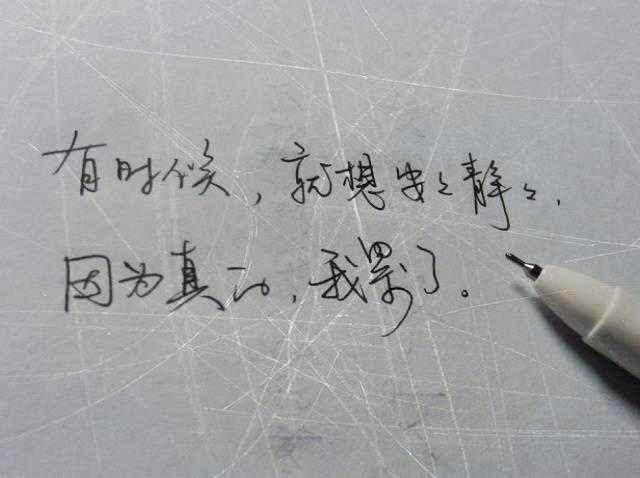 有时候，就想安安静静，
因为真心，我累了。